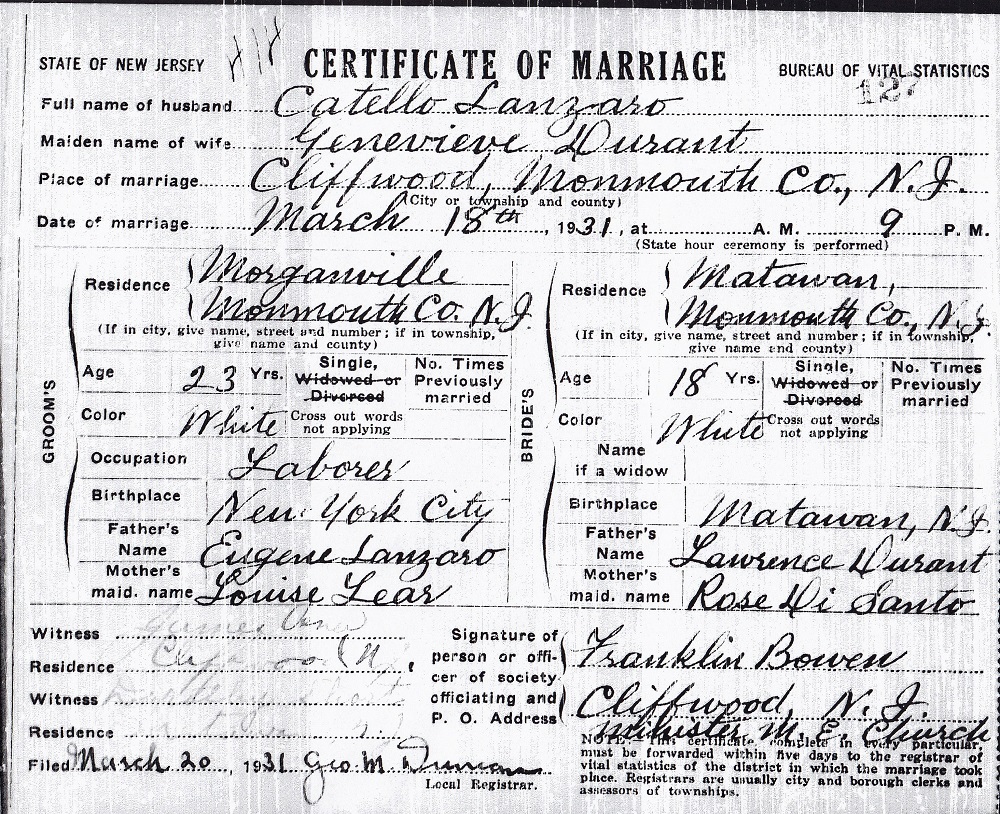 STATE OF NEW JERSEY CERTIFICATE OF MARRIAGE BUREAU OF VITAL STATISTICS
127
Full name of husband Catello Lanzaro
Maiden name of wife Genevieve Durant
Place of marriage Cliffwood, Monmouth Co., N.J.
(City or township and county)
Date of marriage March 18th, 1931, at A. M. 9 P. M.
(State hour ceremony is performed)
GROOM'S
Residence Morganville
Monmouth Co. N.J.
(If in city, give name, street and number; if in township,
give name and county)
Age 23 Yrs. Single, Widowed or Divorced No. Times Previously married
Color White Cross out words not applying
Occupation Laborer
Birthplace New York City
Father's Name Eugene Lanzaro
Mother's maid. name Louise Lear
BRIDE'S
Residence Matawan,
Monmouth Co., N.J.
(If in city, give name, street and number; if in township,
give name and county)
Age 18 Yrs. Single, Widowed or Divorced No. Times Previously married
Color White Cross out words not applying
Name if a widow
Birthplace Matawan, N.J.
Father's Name Lawrence Durant
Mother's maid. name Rose Di Santo
Witness
Residence
Witness
Residence
Signature of person or officer of society officiating and P. O. Address
Franklin Bowen
Cliffwood, N.J.
Minister M. E. Church
Filed March 20, 1931 Geo. M. Duncan
Local Registrar.
NOTE—This certificate, complete in every particular,
must be forwarded within five days to the registrar of
vital statistics of the district in which the marriage took
place. Registrars are usually city and borough clerks and
assessors of townships.